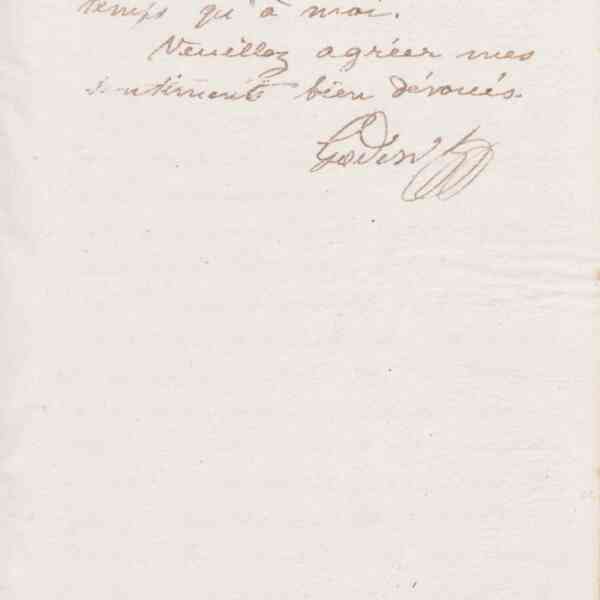 temps qu'à moi.
Veuillez agréer mes
sentiments bien dévoués.
Godin